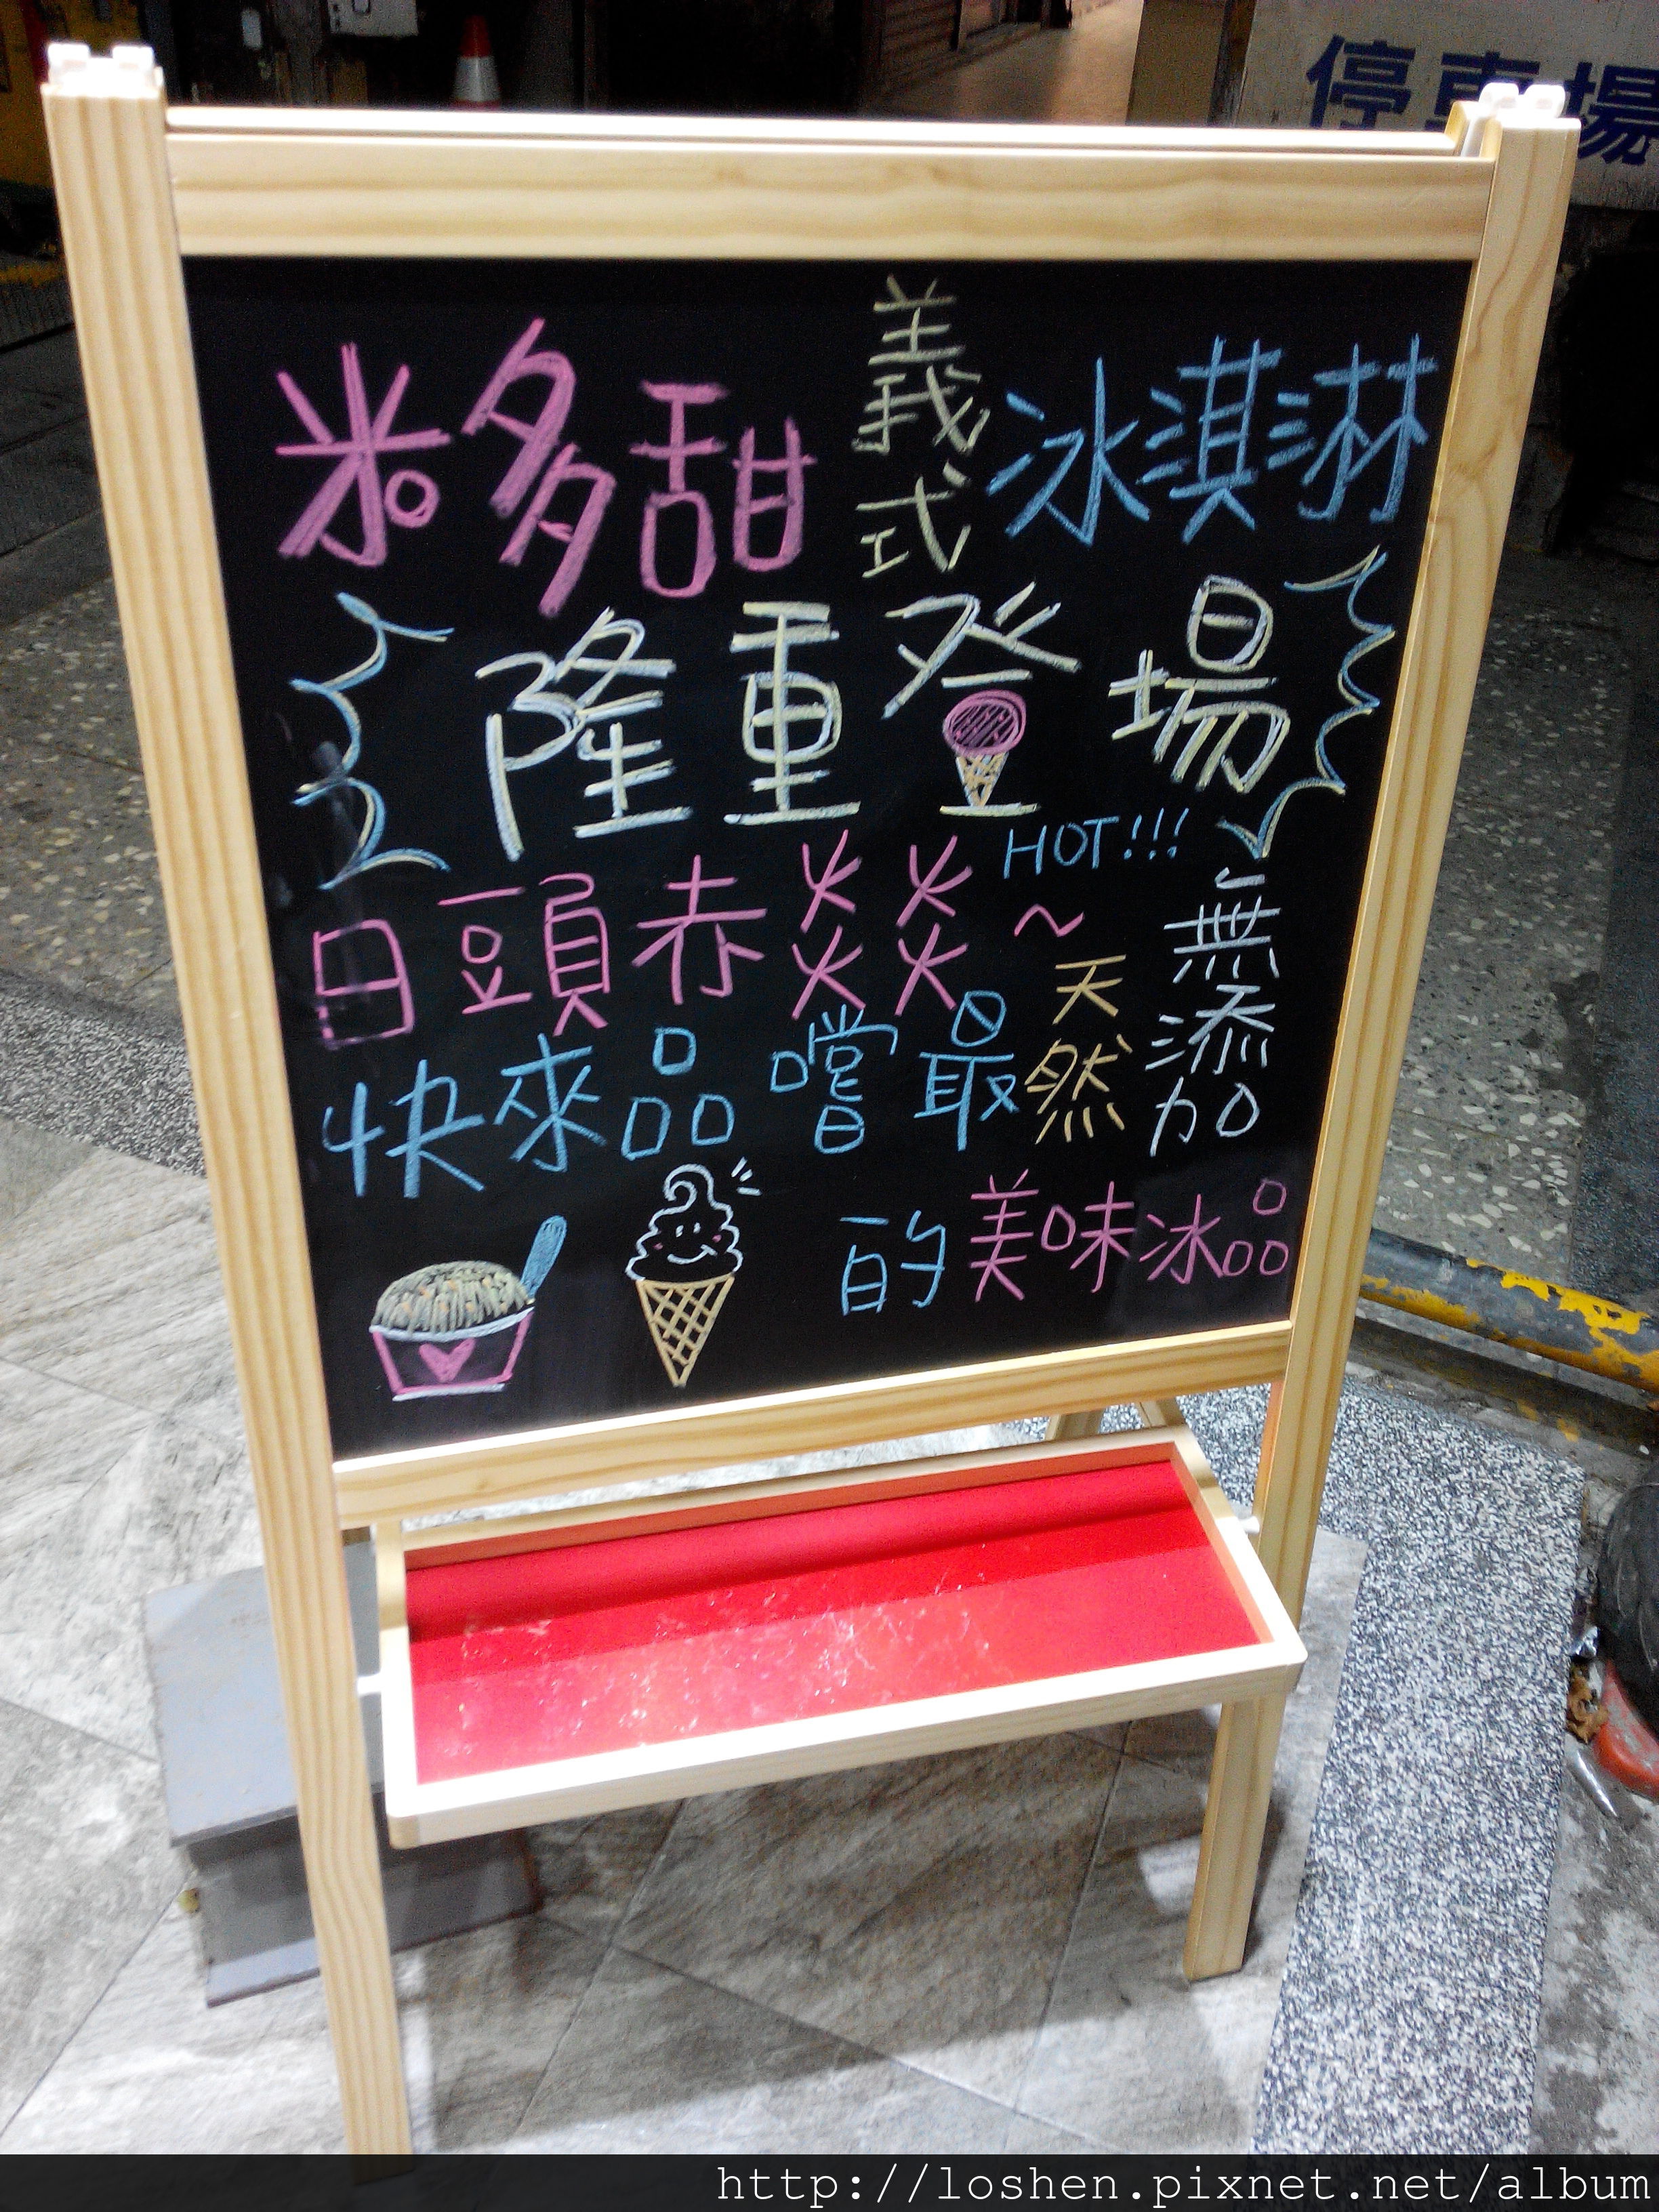 停車場
米多甜 義式 冰淇淋
隆重登場
HOT!!!
日頭赤炎炎~
快來品嚐最天然無添加
的美味冰品
http://loshen.pixnet.net/album